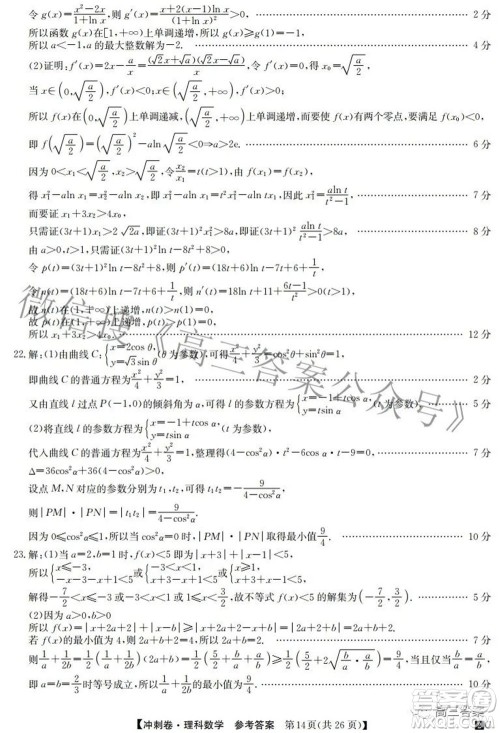 令 g(x)=(x²-2x)/(1+ln x),则 g'(x)=(x+2(x-1)ln x)/(1+ln x)²>0, 2分
所以函数 g(x)在[1,+∞)上单调递增,所以 g(x)≥g(1)=-1,
所以 a<-1,a 的最大整数解为-2. 4分
(2)证明:f'(x)=2x-a/x=(√2x+√a)(√2x-√a)/x,令 f'(x)=0,得 x₀=√(a/2),
当 x∈(0,√(a/2))时,f'(x)<0,x∈(√(a/2),+∞),f'(x)>0,
所以 f(x)在(0,√(a/2))上单调递减,在(√(a/2),+∞)上单调递增,而要使 f(x)有两个零点,要满足 f(x₀)<0,
即 f(√(a/2))=(√(a/2))²-aln√(a/2)<0⇒a>2e. 6分
因为 0<x₁<√(a/2),x₂>√(a/2),令 x₂/x₁=t(t>1),由 f(x₁)=f(x₂),
得 x₁²-aln x₁=x₂²-aln x₂,即 x₁²-aln x₁=t²x₁²-aln tx₁,因此 x₁²=aln t/(t²-1), 7分
而要证 x₁+3x₂>4x₀,
只需证(3t+1)x₁>2√2a,即证(3t+1)²x₁²>8a, 8分
即证(3t+1)² aln t/(t²-1)>8a,因为 a>0,t>1,所以只需证(3t+1)²ln t-8t²+8>0,
令 p(t)=(3t+1)²ln t-8t²+8,则 p'(t)=(18t+6)ln t-7t+6+1/t,
令 n(t)=(18t+6)ln t-7t+6+1/t,则 n'(t)=18ln t+11+(6t-1)/t²>0(t>1),
故 n(t)在(1,+∞)上单调递增,n(t)>n(1)=0,
故 p(t)在(1,+∞)上单调递增,p(t)>p(1)=0,
所以 x₁+3x₂>4x₀. 12分
22.解:(1)由曲线 C:{x=2cos θ, y=√3sin θ (θ为参数),可得x²/4+y²/3=1,
即曲线 C 的普通方程为x²/4+y²/3=1, 2分
又由直线 l 过点 P(-1,0)的倾斜角为 α,可得{x=-1+tcos α, y=tsin α (t 为参数). 5分
(2)将直线 l 的参数方程为{x=-1+tcos α, y=tsin α (t 为参数),
代入曲线 C 的普通方程为x²/4+y²/3=1,整理得(4-cos²α)·t²-6cos α·t-9=0, 7分
Δ=36cos²α+36(4-cos²α)>0,
设点 M,N 对应的参数分别为 t₁,t₂,可得 t₁t₂=-9/(4-cos²α),
则|PM|·|PN|=|t₁t₂|=9/(4-cos²α),
因为 0≤cos²α≤1,所以当 cos²α=0 时,|PM|·|PN|取得最小值9/4. 10分
23.解:(1)当 a=2,b=1 时,f(x)<5 即为|x+3|+|x-1|<5,
所以{x≤-3, -x-3-x+1<5 或{-3<x<1, x+3-x+1<5 或{x≥1, x+3+x-1<5,
解得-7/2<x≤-3 或-3<x<1 或 1≤x<3/2,所以不等式 f(x)<5 的解集为(-7/2,3/2). 5分
(2)因为 a>0,b>0
所以 f(x)=|x+2a-1|+|x-2b+1|≥|x+2a+2-x-2b|=|2a+2b|=2a+2b.
若 f(x)的最小值为 4,则 2a+b+2=4,所以 2a+b=2. 7分
则1/a+1/2b=(1/a+1/2b)(2a+b)×1/2=1/2(5/2+b/a+a/b)≥1/2(5/2+2√(b/a·a/b))=9/4,当且仅当{b/a=a/b,
即 a=b=2/3时等号成立,所以1/a+1/2b的最小值为9/4. 10分
【冲刺卷·理科数学 参考答案 第14页(共26页)】
微信搜《高三答案公众号》
高三答案